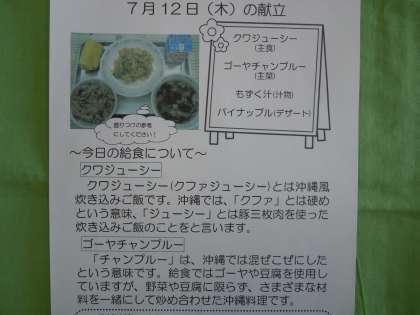 7月12日（木）の献立
クワジューシー
(主食)
ゴーヤチャンプルー
(主菜)
もずく汁(汁物)
パイナップル(デザート)
盛りつけの参考
にしてください！
～今日の給食について～
クワジューシー
クワジューシー(クファジューシー)とは沖縄風
炊き込みご飯です。沖縄では、「クファ」とは硬め
という意味、「ジューシー」とは豚三枚肉を使った
炊き込みご飯のことをと言います。
ゴーヤチャンプルー
「チャンプルー」は、沖縄では混ぜこぜにした
という意味です。給食ではゴーヤや豆腐を使用し
ていますが、野菜や豆腐に限らず、さまざまな材
料を一緒にして炒め合わせた沖縄料理です。